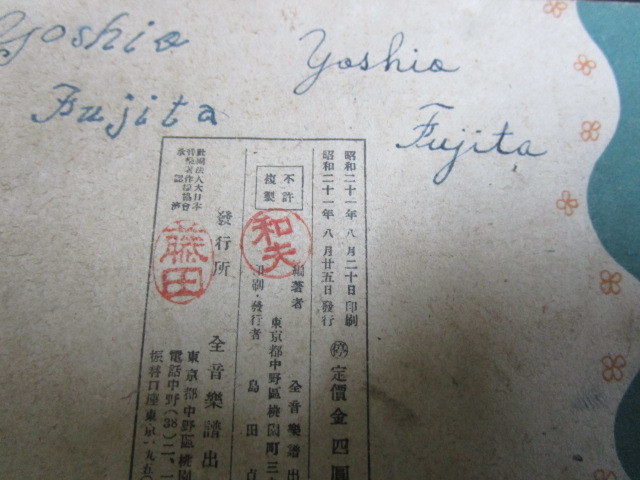 Yoshio
Fujita
Yoshio
Fujita
昭和二十一年八月二十日印刷
昭和二十一年八月廿五日發行
停 定價金四圓
不許
複製
和夫
編著者 全音樂譜出
東京都中野區桃園町三
印刷・發行者 島田貞
發行所 全音樂譜出
東京都中野區桃園
電話中野(38)二、一
振替口座東京一九五〇
社團法人大日本
音樂著作權協會
承認濟
藤田